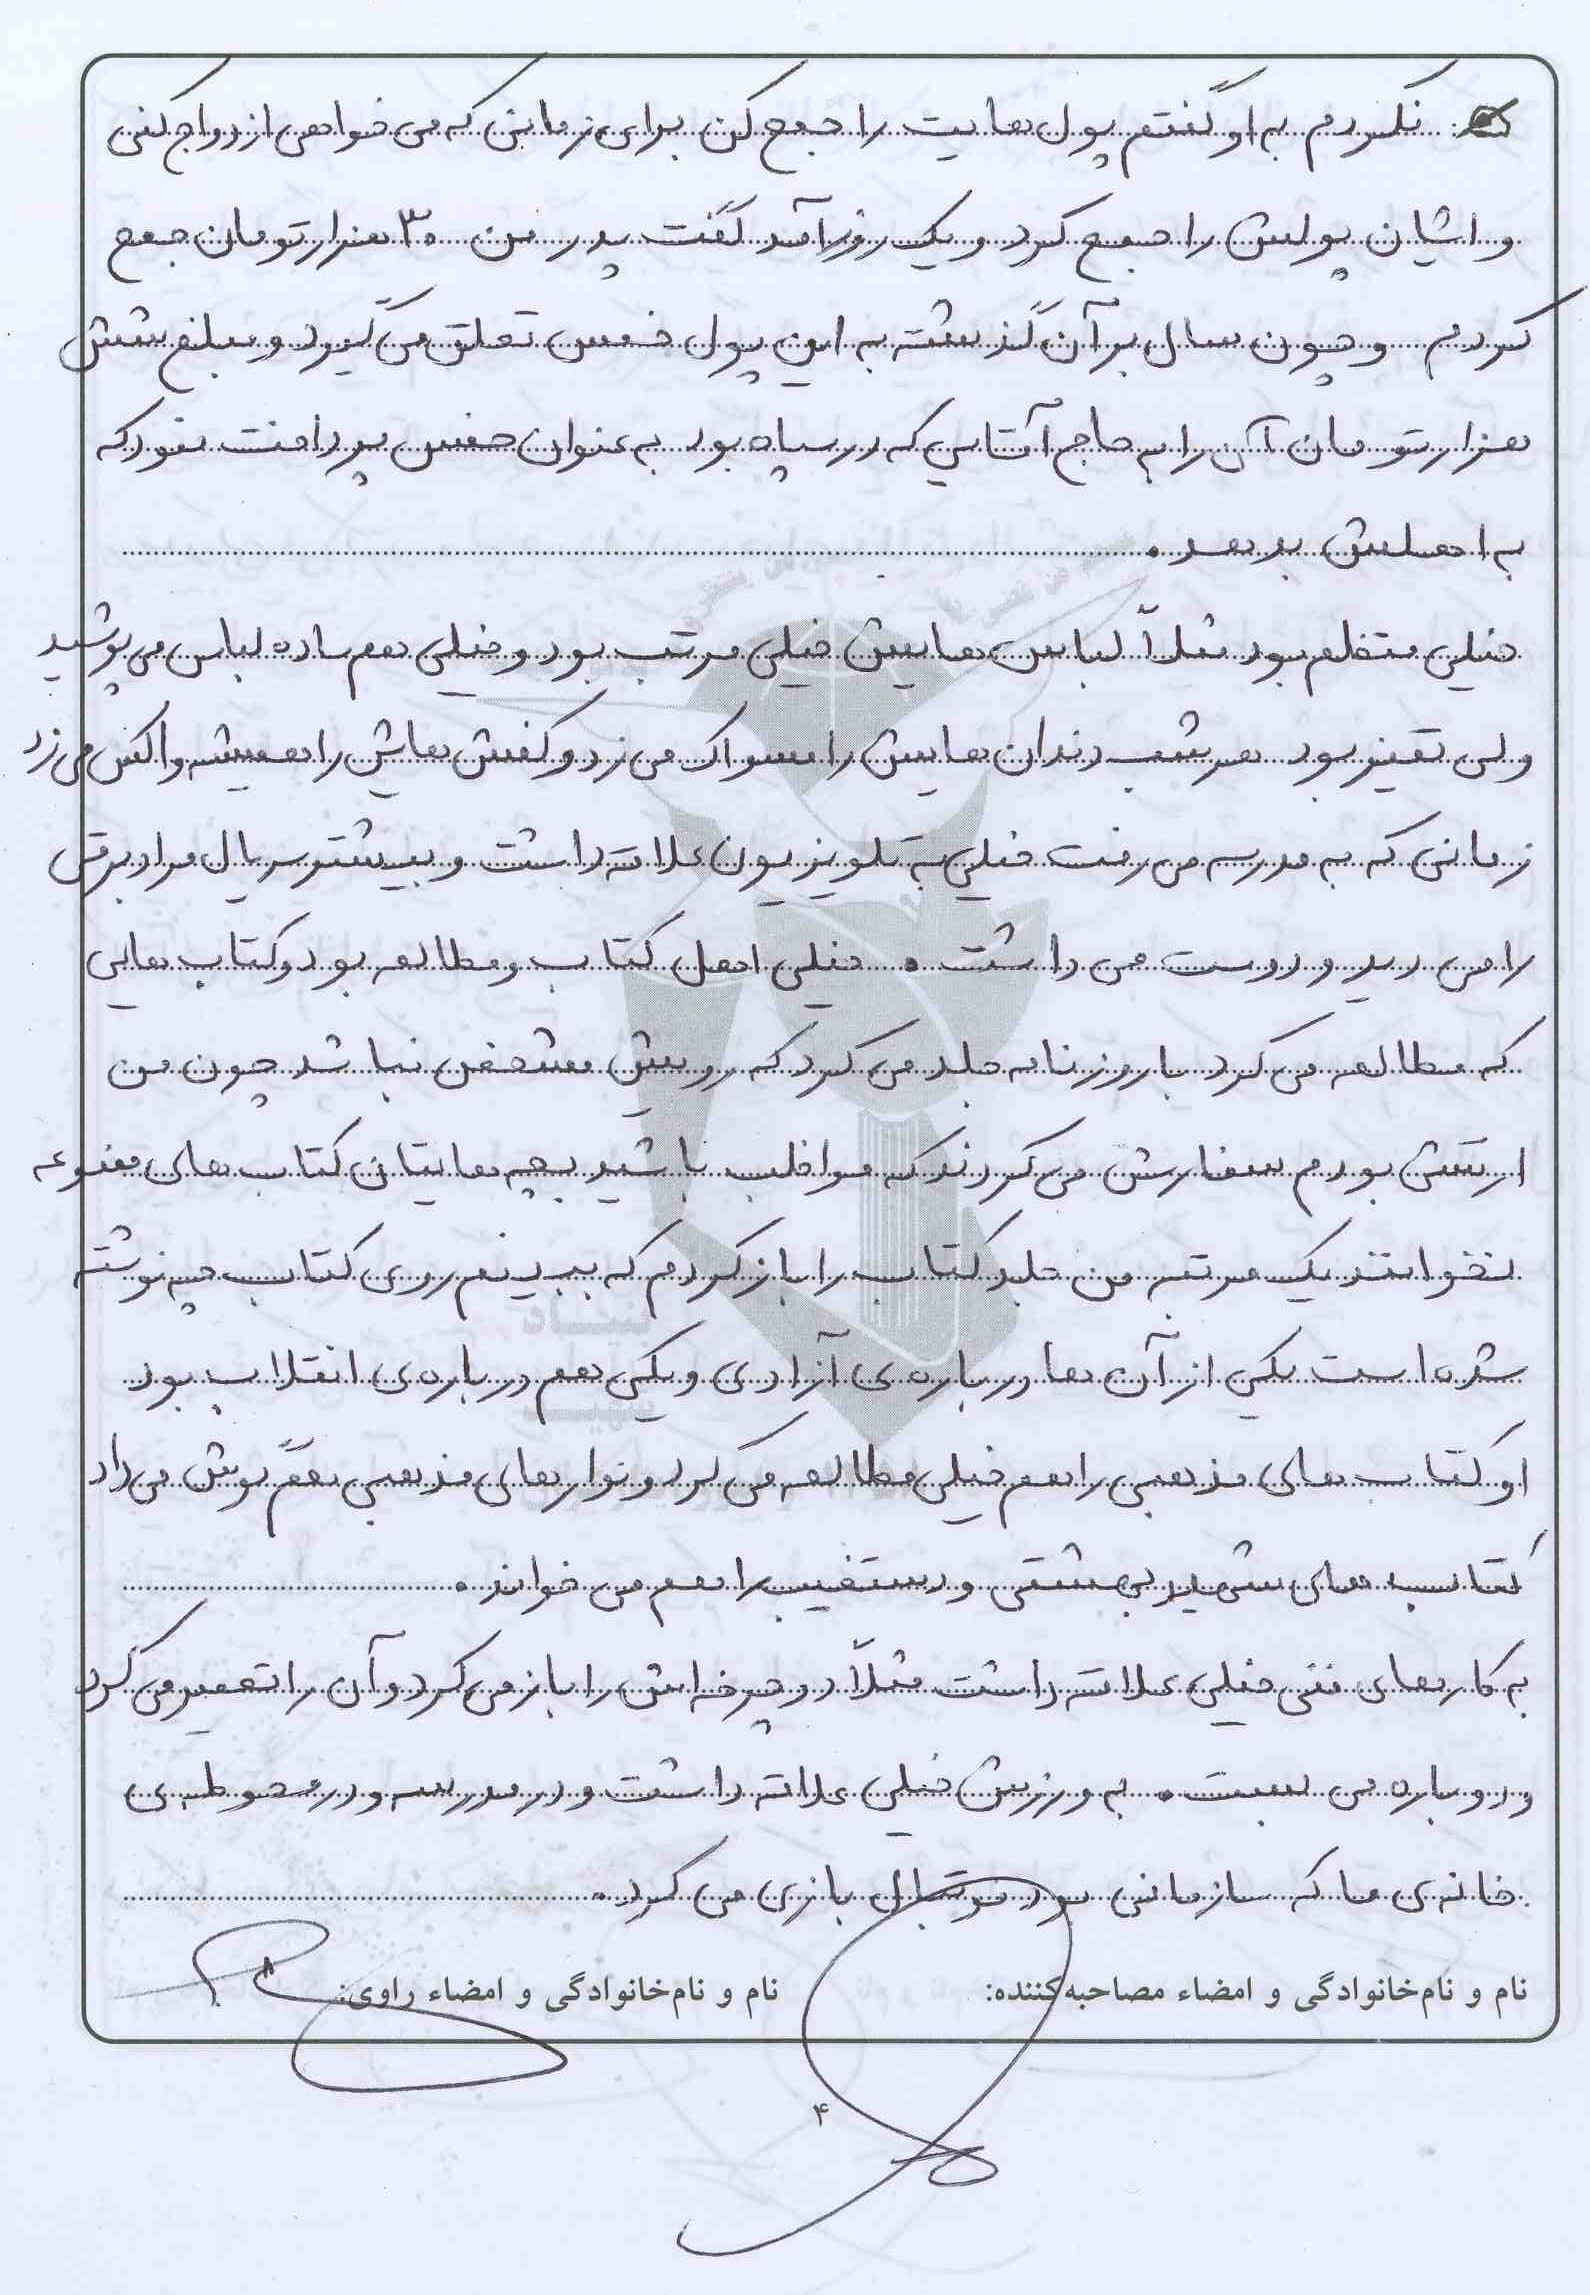 نکردم به او گفتم پول هایت را جمع کن برای زمانی که می خواهی ازدواج کنی
و ایشان پولش را جمع کرد و یک روز آمد گفت پدر من ۳۰ هزار تومان جمع
کردم و چون سال بر آن گذشته به این پول خمس تعلق می گیرد و مبلغ شش
هزار تومان آن را به حاج آقایی که در سپاه بود به عنوان خمس پرداخت نمود که
به اهلش بدهد .
خیلی منظم بود مثلاً لباس هایش خیلی مرتب بود و خیلی هم ساده لباس می پوشید
ولی تمیز بود هر شب دندان هایش را مسواک می زد و کفش هایش را همیشه واکس می زد
زمانی که به مدرسه می رفت خیلی به تلویزیون علاقه داشت و بیشتر سریال مراد برقی
را می دید و دوست می داشت . خیلی اهل کتاب و مطالعه بود و کتاب هایی
که مطالعه می کرد با روزنامه جلد می کرد که رویش مشخص نباشد چون من
ارتشی بودم سفارش می کردند که مواظب باشید بچه هایتان کتاب های ممنوعه
نخوانند یک مرتبه من جلد کتاب را باز کردم که ببینم روی کتاب چه نوشته
شده است یکی از آن ها درباره ی آزادی و یکی هم درباره ی انقلاب بود
او کتاب های مذهبی را هم خیلی مطالعه می کرد و نوارهای مذهبی هم گوش می داد
کتاب های شهید بهشتی و دستغیب را هم می خواند .
به کارهای فنی خیلی علاقه داشت مثلاً دوچرخه اش را باز می کرد و آن را تعمیر می کرد
و دوباره می بست . به ورزش خیلی علاقه داشت و در مدرسه و در محوطه ی
خانه ی ما که سازمانی بود فوتبال بازی می کرد .
نام و نام‌خانوادگی و امضاء مصاحبه‌کننده: نام و نام‌خانوادگی و امضاء راوی:
۴
بنیاد
شهید